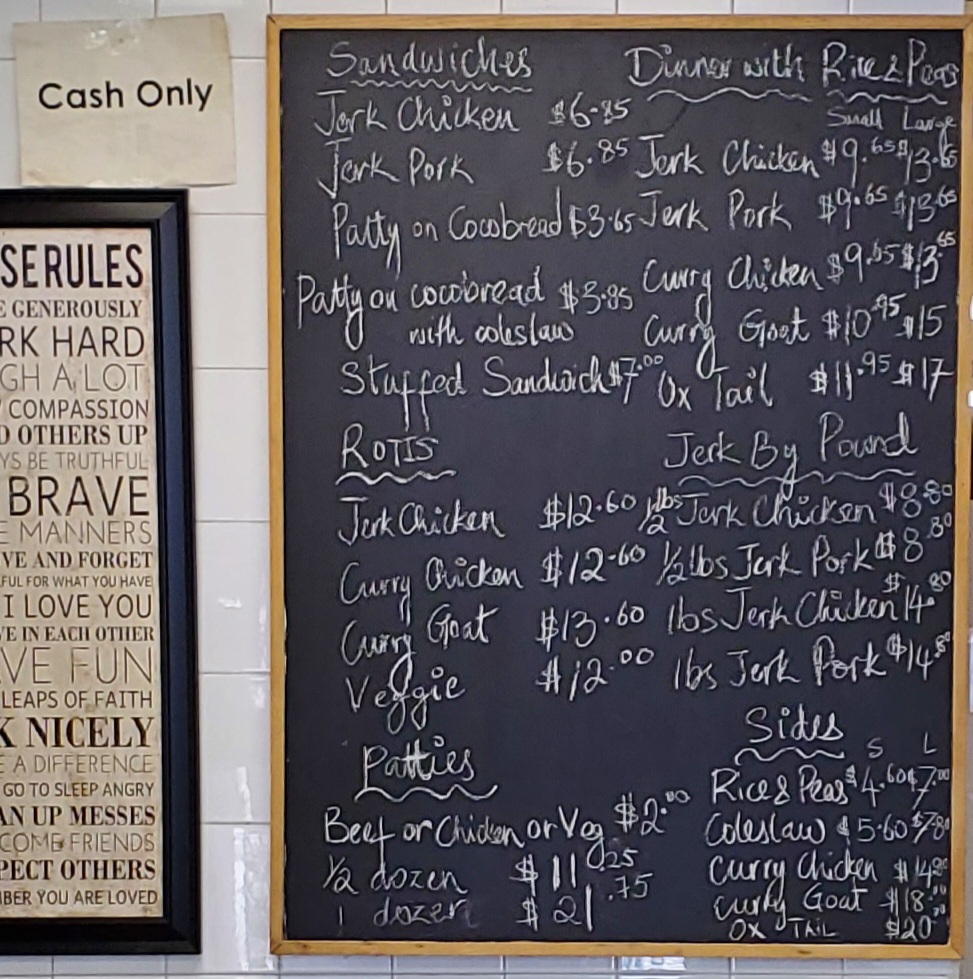 Cash Only
SE RULES
E GENEROUSLY
RK HARD
GH A LOT
COMPASSION
D OTHERS UP
YS BE TRUTHFUL
BRAVE
E MANNERS
VE AND FORGET
FUL FOR WHAT YOU HAVE
I LOVE YOU
VE IN EACH OTHER
VE FUN
LEAPS OF FAITH
K NICELY
E A DIFFERENCE
GO TO SLEEP ANGRY
AN UP MESSES
COME FRIENDS
PECT OTHERS
BER YOU ARE LOVED
Sandwiches
Jerk Chicken $6.85
Jerk Pork $6.85
Patty on Cocobread $3.65
Patty on cocobread $3.85
with coleslaw
Stuffed Sandwich $7.00
ROTIS
Jerk Chicken $12.60
Curry Chicken $12.60
Curry Goat $13.60
Veggie $12.00
Patties
Beef or Chicken or Veg $2.00
1/2 dozen $11.25
1 dozen $21.75
Dinner with Rice & Peas
Small Large
Jerk Chicken $9.65 $13.65
Jerk Pork $9.65 $13.65
Curry Chicken $9.65 $13.65
Curry Goat $10.95 $15
Ox Tail $11.95 $17
Jerk By Pound
1/2 lbs Jerk Chicken $8.80
1/2 lbs Jerk Pork $8.80
1 lbs Jerk Chicken $14.80
1 lbs Jerk Pork $14.80
Sides
S L
Rice & Peas $4.60 $7.00
Coleslaw $5.60 $7.80
Curry Chicken $14.80
Curry Goat $18
OX TAIL $20